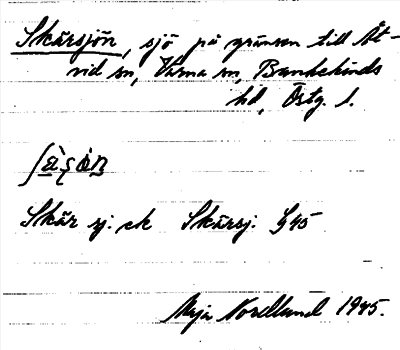 Skärsjön, sjö på gränsen till Åt-
vid sn, Värna sn, Bankekinds
hd, Östg. l.
Skär sj. ek Skärsj. G 45
Maja Nordlund 1945.